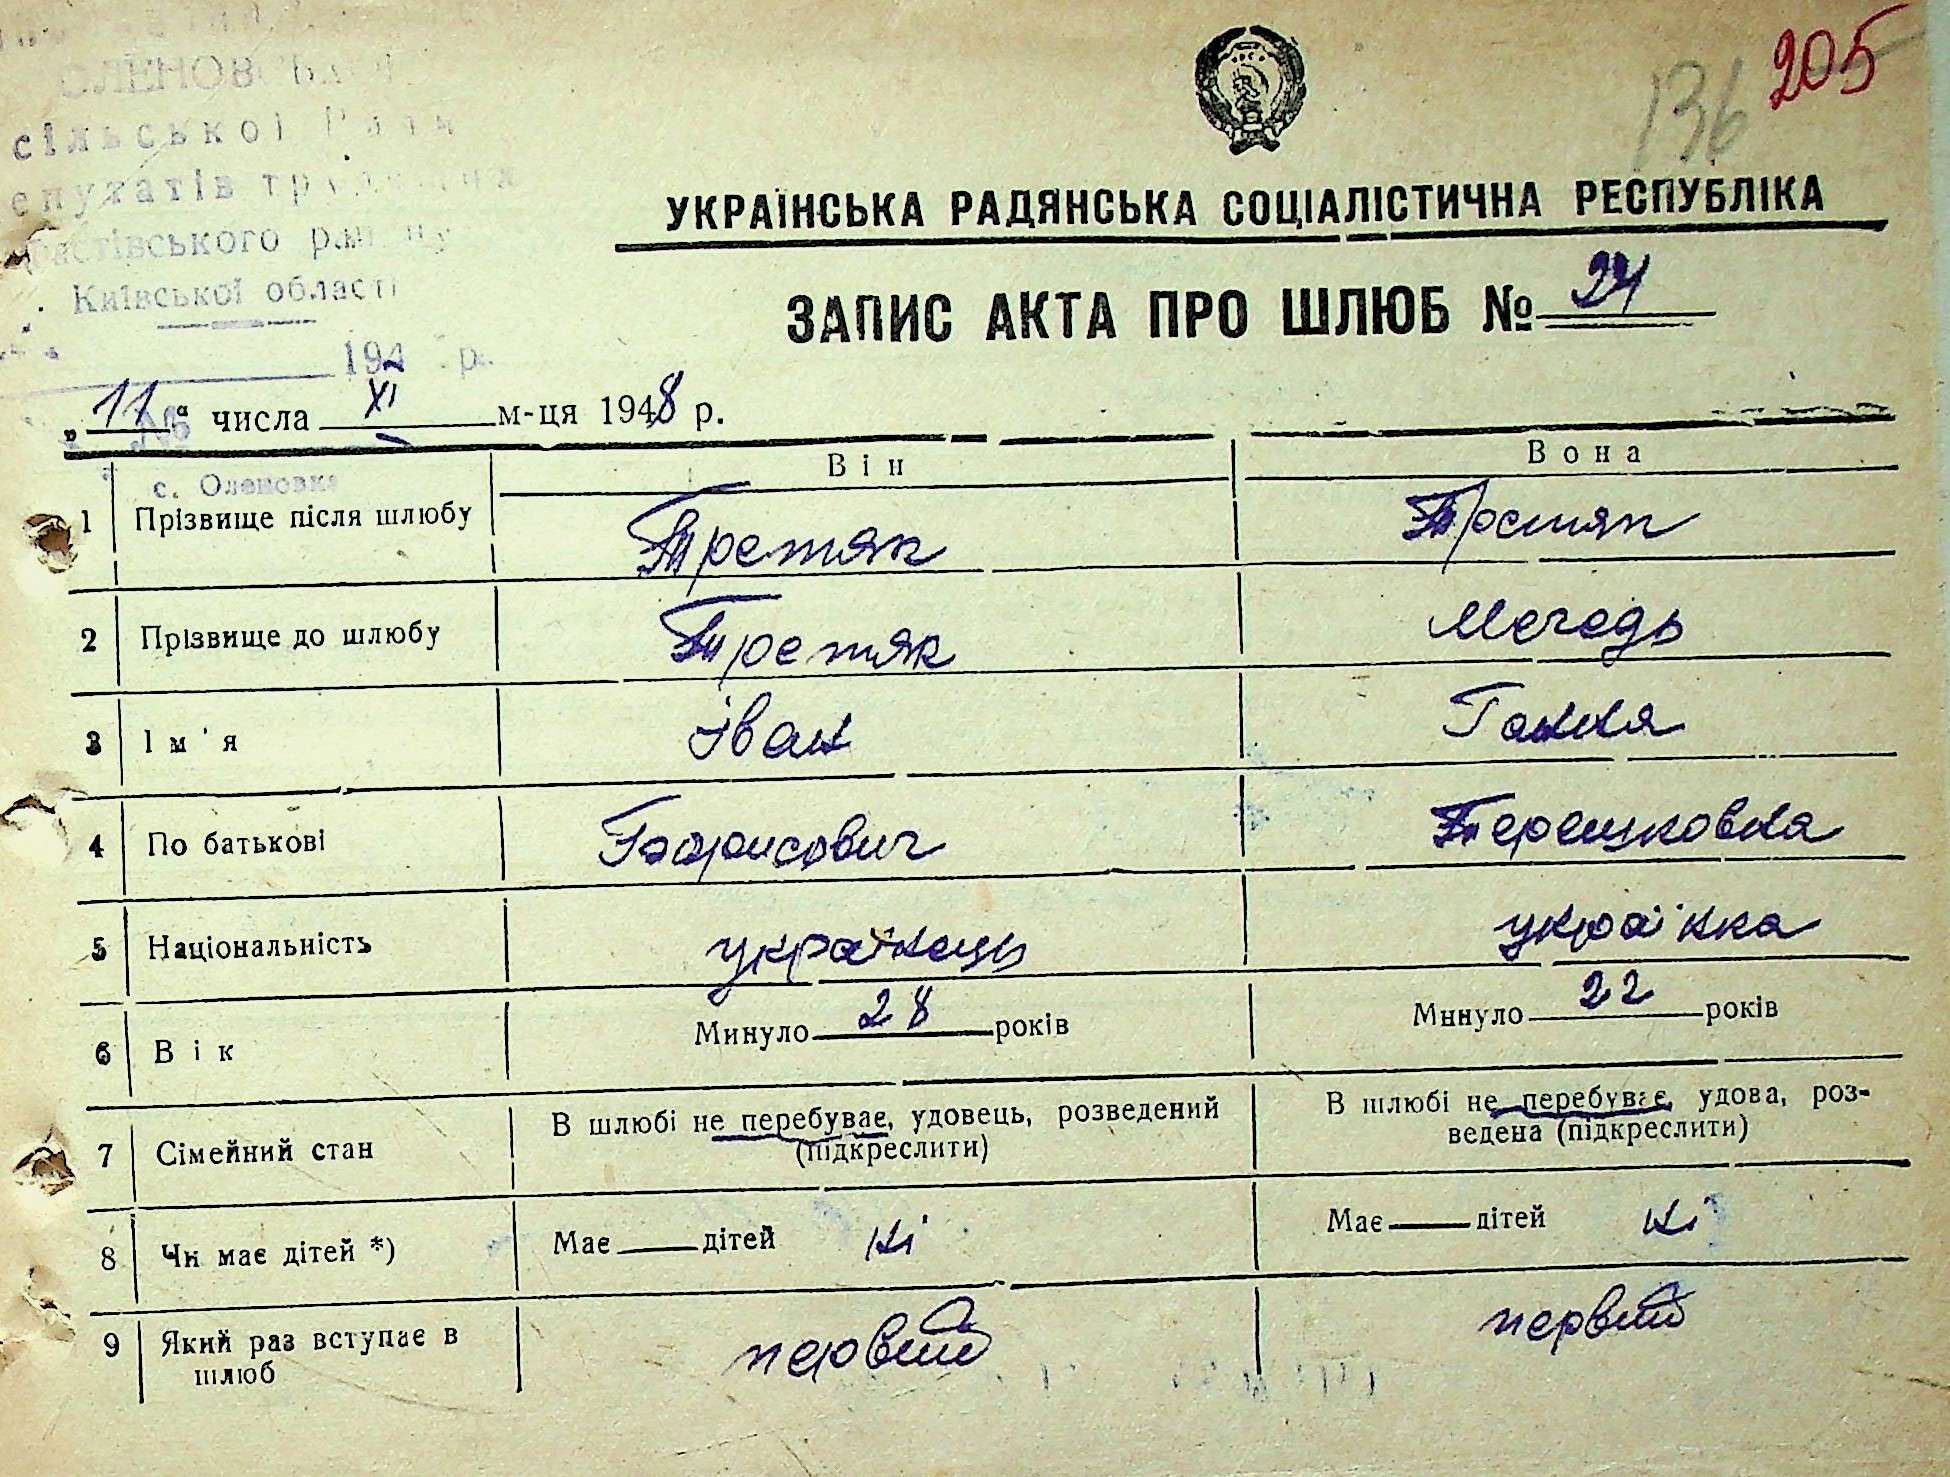 205
136
ОЛЕНОВСЬКОЇ
сільської Ради
епутатів трудящих
астівського району
Київської області
194 р.
УКРАЇНСЬКА РАДЯНСЬКА СОЦІАЛІСТИЧНА РЕСПУБЛІКА
ЗАПИС АКТА ПРО ШЛЮБ № 24
„11“ числа XI м-ця 1948 р.
№
с. Оленовка
Він Вона
1 Прізвище після шлюбу Третяк Третяк
2 Прізвище до шлюбу Третяк Мегедь
3 Ім'я Іван Гання
4 По батькові Борисович Терешковна
5 Національність українець українка
6 Вік Минуло 28 років Минуло 22 років
7 Сімейний стан В шлюбі не перебуває, удовець, розведений (підкреслити) В шлюбі не перебуває, удова, роз-
ведена (підкреслити)
8 Чи має дітей *) Має дітей ні Має дітей ні
9 Який раз вступає в первий первий
шлюб